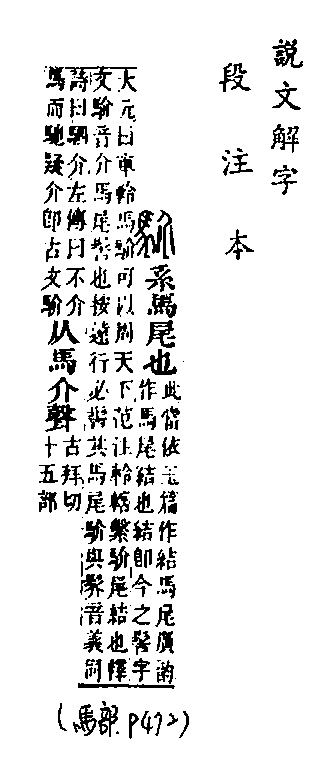 說文解字
段注本
䭿系馬尾也
此當依玉篇作結馬尾廣韵
作馬尾結也結卽今之髻字
大元曰車軨馬䭿可以周天下范注軨轄繫䭿尾結也釋
文䭿音介馬尾髻也按遠行必髻其馬尾䭿與䯰音義同
詩曰駟介左傳曰不介
馬而馳疑介卽古文䭿
从馬介聲
古拜切
十五部
(馬部 p472)